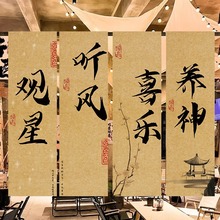 观星
听风
喜乐
养神